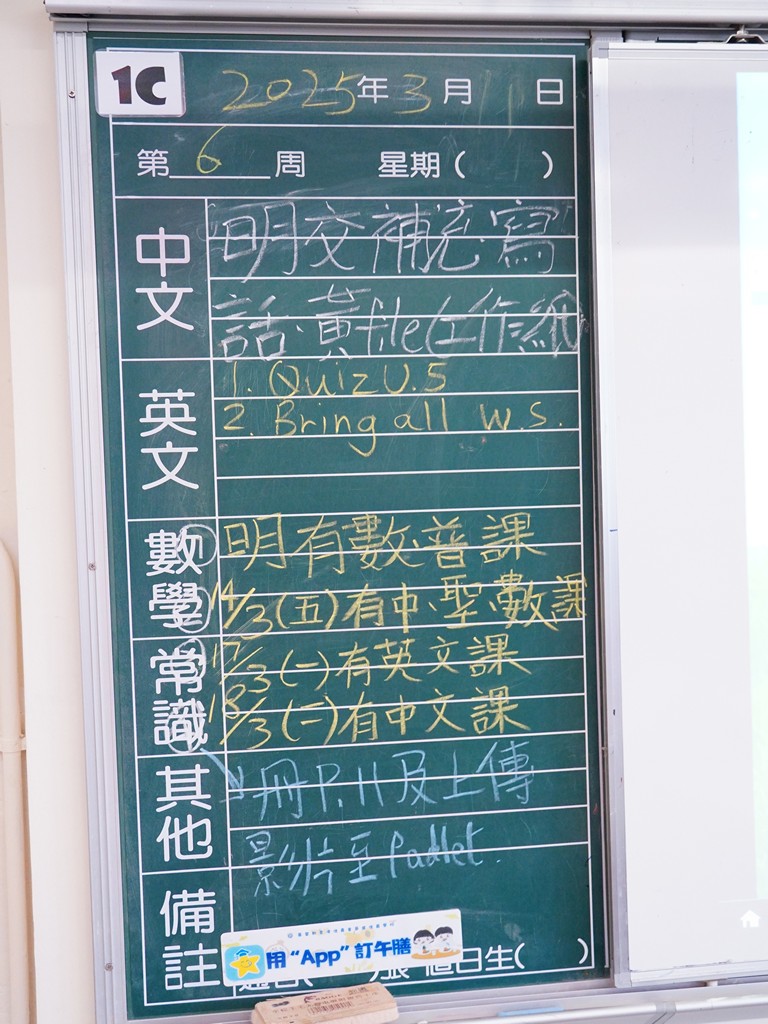 1C
2025年3月 日
第6周 星期( )
中文
明交補充、寫
話、黃file(工作紙)
英文
1. Quiz U.5
2. Bring all w.s.
數學
明有數、普課
14/3(五)有中、聖、數課
常識
17/3(一)有英文課
18/3(二)有中文課
其他
冊P.11及上傳
影片至Padlet.
備註
用“App”訂午膳
值日生( )